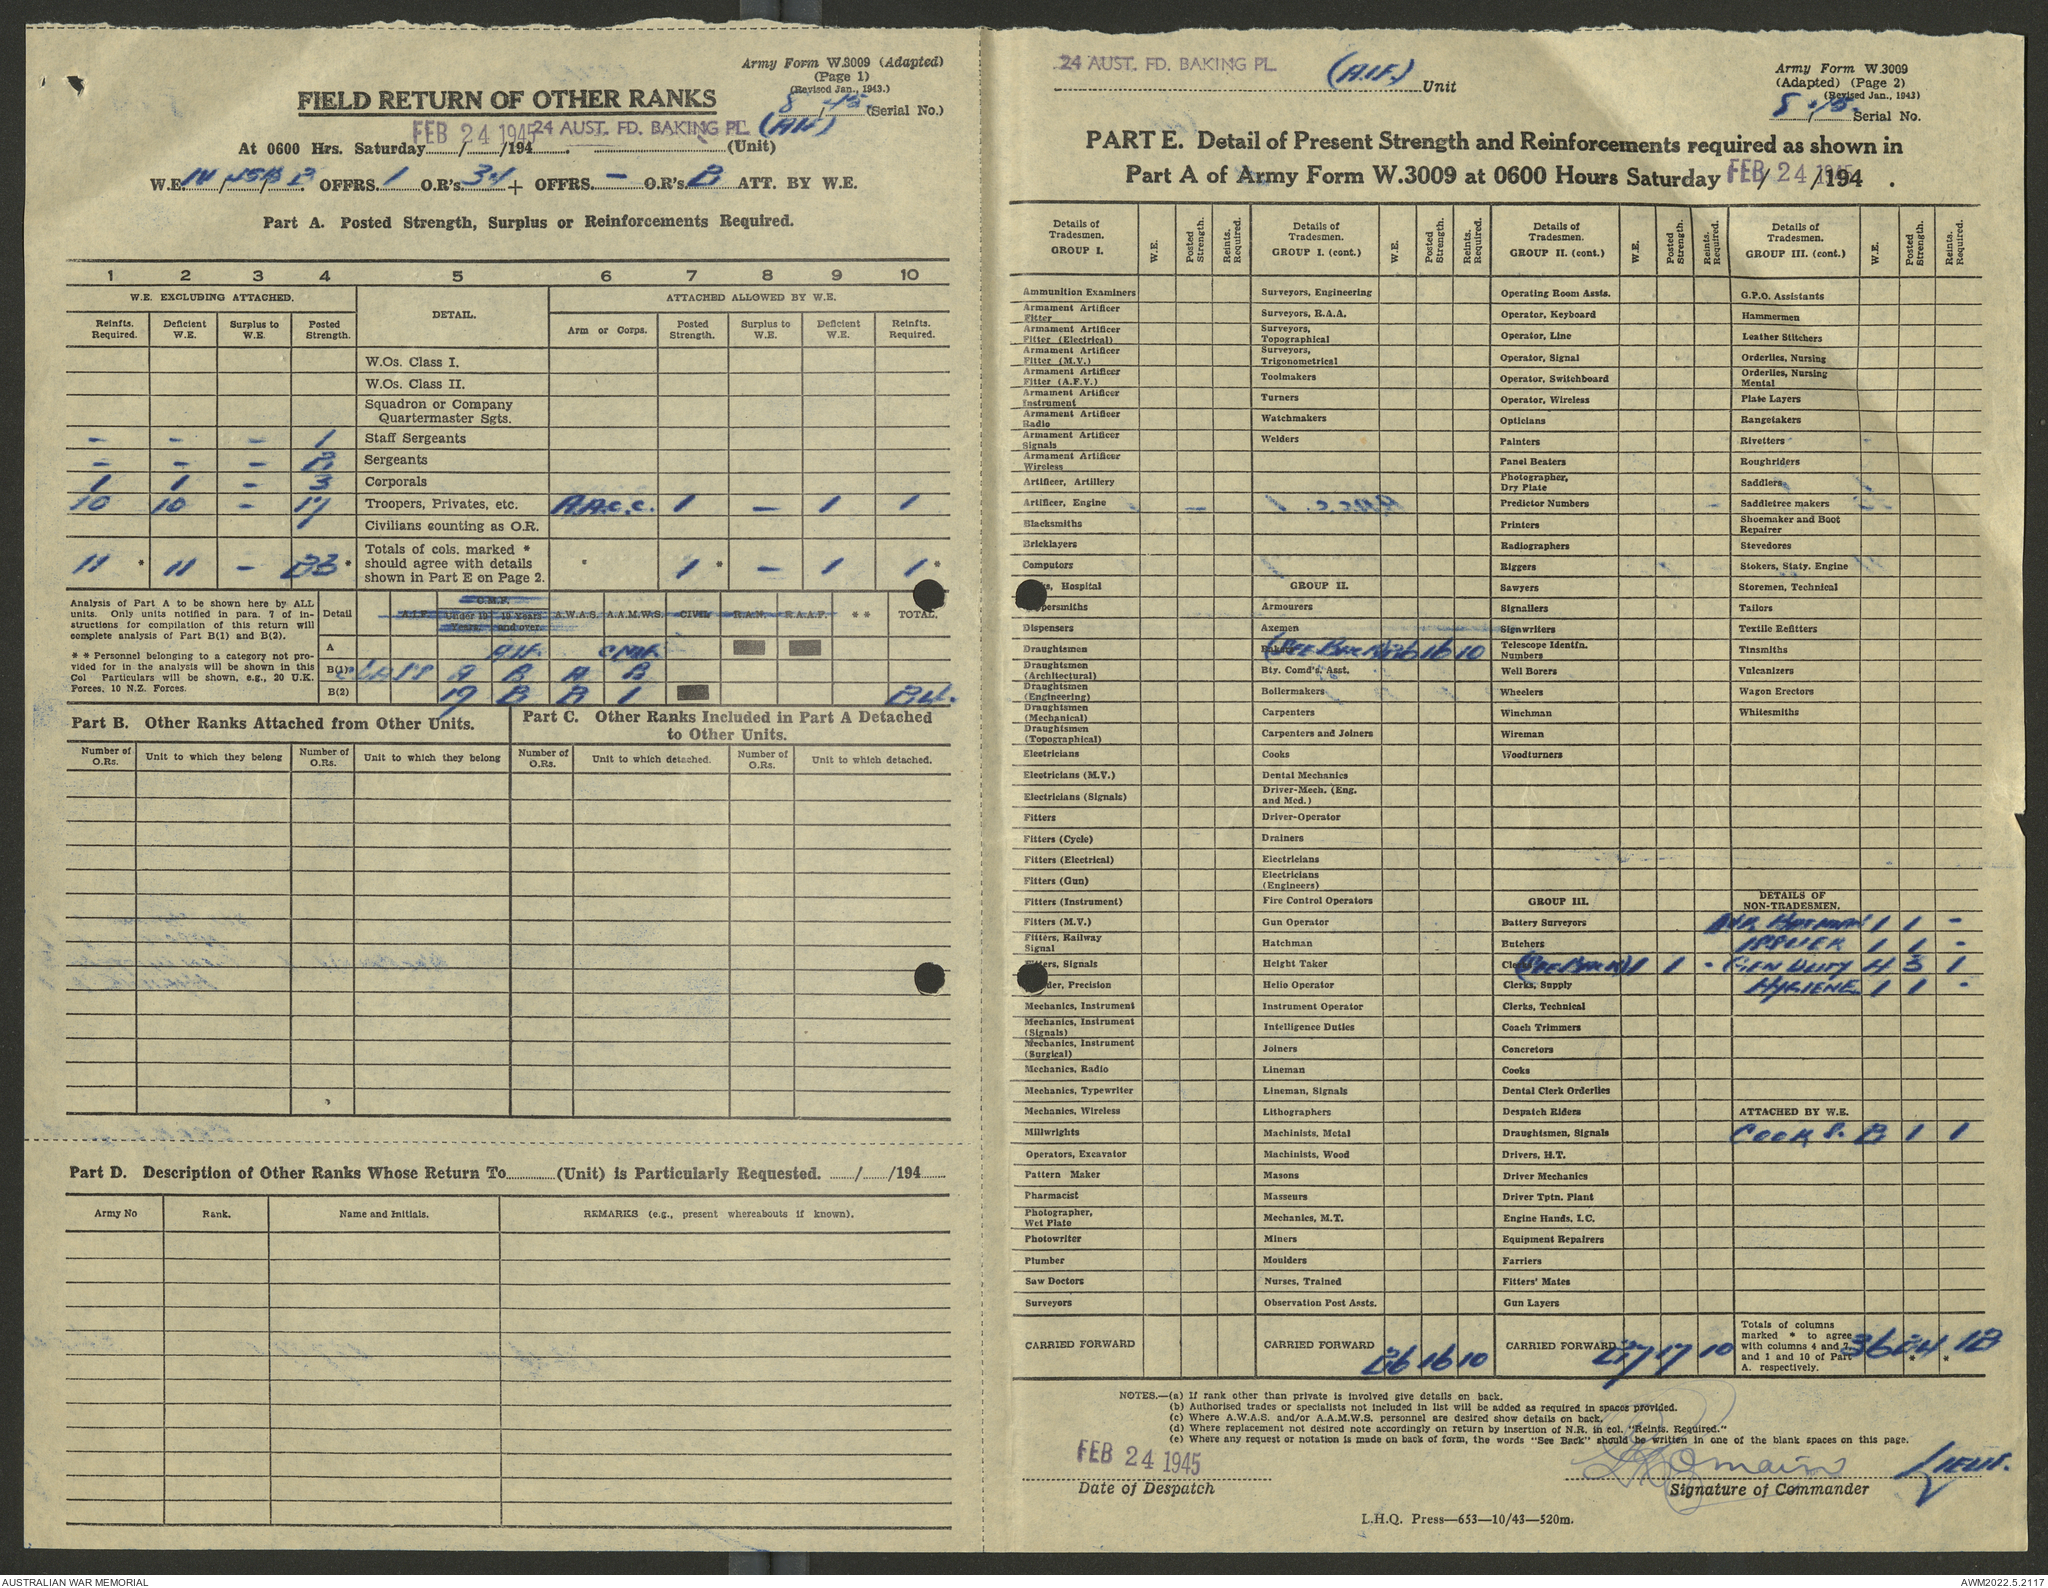 Army Form W.3009 (Adapted)
(Page 1)
(Revised Jan., 1943.)
FIELD RETURN OF OTHER RANKS
8 / 45 (Serial No.)
FEB 24 1945 24 AUST. FD. BAKING PL. (AIF)
At 0600 Hrs. Saturday......../......../194........ (Unit)
W.E. OFFRS. 1 O.R's. 34 + OFFRS. – O.R's. 2 ATT. BY W.E.
Part A. Posted Strength, Surplus or Reinforcements Required.
1 2 3 4 5 6 7 8 9 10
W.E. EXCLUDING ATTACHED. DETAIL. ATTACHED ALLOWED BY W.E.
Reinfts. Required. Deficient W.E. Surplus to W.E. Posted Strength. Arm or Corps. Posted Strength. Surplus to W.E. Deficient W.E. Reinfts. Required.
W.Os. Class I.
W.Os. Class II.
Squadron or Company
Quartermaster Sgts.
– – – 1 Staff Sergeants
– – – 2 Sergeants
1 1 – 3 Corporals
10 10 – 17 Troopers, Privates, etc. A.A.C.C. 1 – 1 1
Civilians counting as O.R.
11 * 11 – 23 * Totals of cols. marked * should agree with details shown in Part E on Page 2. 1 * – 1 1 *
Analysis of Part A to be shown here by ALL units. Only units notified in para. 7 of instructions for compilation of this return will complete analysis of Part B(1) and B(2).
* * Personnel belonging to a category not provided for in the analysis will be shown in this Col Particulars will be shown, e.g., 20 U.K. Forces, 10 N.Z. Forces.
Detail A.I.F. C.M.F. Under 19 Years. 19 Years and over. A.W.A.S. A.A.M.W.S. CIVIL R.A.N. R.A.A.F. * * TOTAL.
A AIF. CMF.
B(1) CLASS A B A B
B(2) 19 2 2 1 24.
Part B. Other Ranks Attached from Other Units.
Part C. Other Ranks Included in Part A Detached to Other Units.
Number of O.Rs. Unit to which they belong Number of O.Rs. Unit to which they belong Number of O.Rs. Unit to which detached. Number of O.Rs. Unit to which detached.
Part D. Description of Other Ranks Whose Return To............(Unit) is Particularly Requested. ....../....../194......
Army No Rank. Name and Initials. REMARKS (e.g., present whereabouts if known).
24 AUST. FD. BAKING PL. (A.I.F.) Unit
Army Form W.3009
(Adapted) (Page 2)
(Revised Jan., 1943)
8 / 45. Serial No.
PART E. Detail of Present Strength and Reinforcements required as shown in
Part A of Army Form W.3009 at 0600 Hours Saturday FEB 24 1945 / /194 .
Details of Tradesmen. GROUP I. W.E. Posted Strength. Reints. Required.
Ammunition Examiners
Armament Artificer Fitter
Armament Artificer Fitter (Electrical)
Armament Artificer Fitter (M.V.)
Armament Artificer Fitter (A.F.V.)
Armament Artificer Instrument
Armament Artificer Radio
Armament Artificer Signals
Armament Artificer Wireless
Artificer, Artillery
Artificer, Engine
Blacksmiths
Bricklayers
Computors
Hospital
Dispensers
Draughtsmen
Draughtsmen (Architectural)
Draughtsmen (Engineering)
Draughtsmen (Mechanical)
Draughtsmen (Topographical)
Electricians
Electricians (M.V.)
Electricians (Signals)
Fitters
Fitters (Cycle)
Fitters (Electrical)
Fitters (Gun)
Fitters (Instrument)
Fitters (M.V.)
Fitters, Railway Signal
Signals
Precision
Mechanics, Instrument
Mechanics, Instrument (Signals)
Mechanics, Instrument (Surgical)
Mechanics, Radio
Mechanics, Typewriter
Mechanics, Wireless
Millwrights
Operators, Excavator
Pattern Maker
Pharmacist
Photographer, Wet Plate
Photowriter
Plumber
Saw Doctors
Surveyors
CARRIED FORWARD
Details of Tradesmen. GROUP I. (cont.) W.E. Posted Strength. Reints. Required.
Surveyors, Engineering
Surveyors, R.A.A.
Surveyors, Topographical
Surveyors, Trigonometrical
Toolmakers
Turners
Watchmakers
Welders
GROUP II.
Armourers
Axemen
Bakers (SEE BACK) 26 16 10
Bty. Comd's. Asst.
Boilermakers
Carpenters
Carpenters and Joiners
Cooks
Dental Mechanics
Driver-Mech. (Eng. and Med.)
Driver-Operator
Drainers
Electricians
Electricians (Engineers)
Fire Control Operators
Gun Operator
Hatchman
Height Taker
Helio Operator
Instrument Operator
Intelligence Duties
Joiners
Lineman
Lineman, Signals
Lithographers
Machinists, Metal
Machinists, Wood
Masons
Masseurs
Mechanics, M.T.
Miners
Moulders
Nurses, Trained
Observation Post Assts.
CARRIED FORWARD 26 16 10
Details of Tradesmen. GROUP II. (cont) W.E. Posted Strength. Reints. Required.
Operating Room Assts.
Operator, Keyboard
Operator, Line
Operator, Signal
Operator, Switchboard
Operator, Wireless
Opticians
Painters
Panel Beaters
Photographer, Dry Plate
Predictor Numbers
Printers
Radiographers
Riggers
Sawyers
Signallers
Signwriters
Telescope Identfn. Numbers
Well Borers
Wheelers
Winchman
Wireman
Woodturners
GROUP III.
Battery Surveyors
Butchers
Clerks (SEE BACK) 1 1 -
Clerks, Supply
Clerks, Technical
Coach Trimmers
Concretors
Cooks
Dental Clerk Orderlies
Despatch Riders
Draughtsmen, Signals
Drivers, H.T.
Driver Mechanics
Driver Tptn. Plant
Engine Hands, I.C.
Equipment Repairers
Farriers
Fitters' Mates
Gun Layers
CARRIED FORWARD 27 17 10
Details of Tradesmen. GROUP III. (cont.) W.E. Posted Strength. Reints. Required.
G.P.O. Assistants
Hammermen
Leather Stitchers
Orderlies, Nursing
Orderlies, Nursing Mental
Plate Layers
Rangetakers
Rivetters
Roughriders
Saddlers
Saddletree makers
Shoemaker and Boot Repairer
Stevedores
Stokers, Staty. Engine
Storemen, Technical
Tailors
Textile Refitters
Tinsmiths
Vulcanizers
Wagon Erectors
Whitesmiths
DETAILS OF NON-TRADESMEN.
BATMAN 1 1 -
ISSUER 1 1 -
GEN DUTY 4 3 1
HYGIENE 1 1 -
ATTACHED BY W.E.
COOKS. 2 1 1
Totals of columns marked * to agree with columns 4 and 7, and 1 and 10 of Part A. respectively. 36 24 * 12 *
NOTES.—(a) If rank other than private is involved give details on back.
(b) Authorised trades or specialists not included in list will be added as required in spaces provided.
(c) Where A.W.A.S. and/or A.A.M.W.S. personnel are desired show details on back.
(d) Where replacement not desired note accordingly on return by insertion of N.R. in col. "Reints. Required."
(e) Where any request or notation is made on back of form, the words "See Back" should be written in one of the blank spaces on this page.
FEB 24 1945
Date of Despatch
Lieut.
Signature of Commander
L.H.Q. Press—653—10/43—520m.
AUSTRALIAN WAR MEMORIAL
AWM2022.5.2117